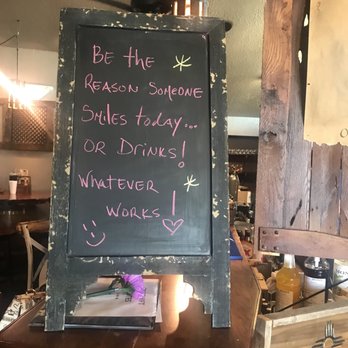 Be the
Reason Someone
Smiles today...
or Drinks!
Whatever
works!